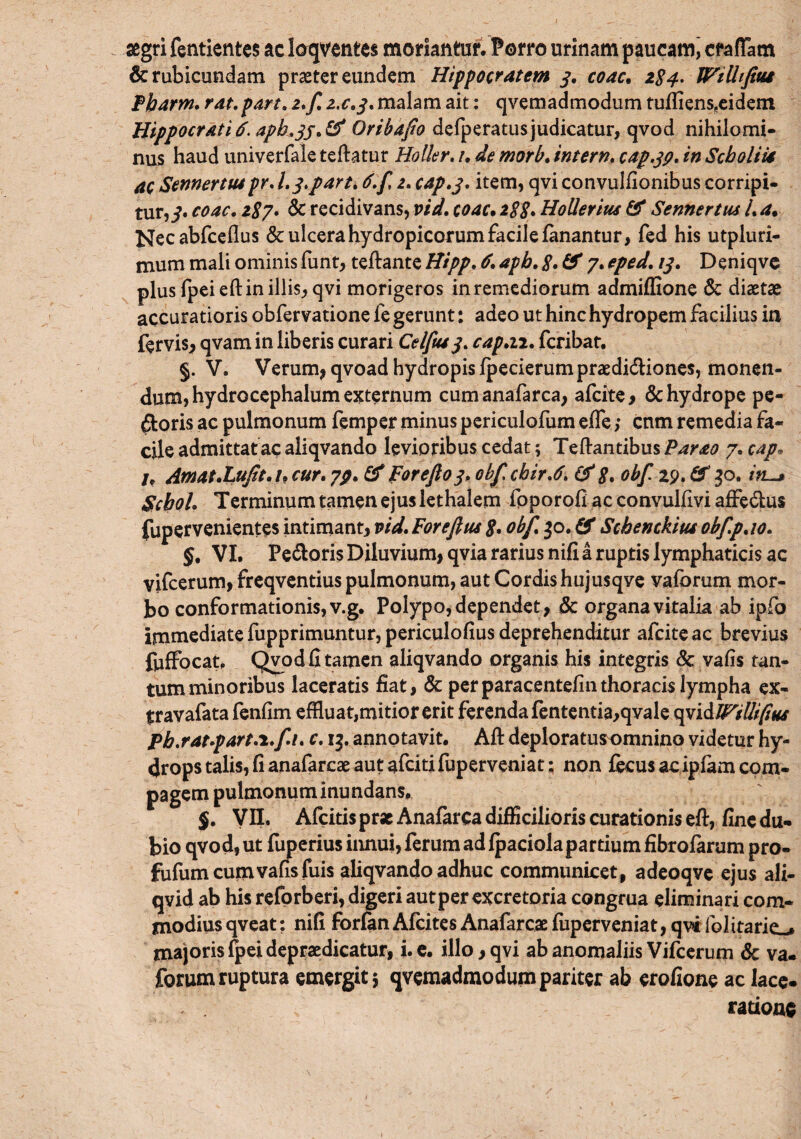 ægri ſentientes ac loqventes moriantur. Porro urinam paucam, craſſam
& rubicundam præter eundem Hippocratem 3. coac. 284. Williſius
Pharm. rat. part. 2. ſ. 2.c.3. malam ait : qvemadmodum tuſſiens, eidem
Hippocrati 6. aph. 35. & Oribaſio deſperatus judicatur, qvod nihilomi-
nus haud univerſale teſtatur Holler. 1. de morb. intern. cap.39. in Scholiis
ac Sennertus pr. l. 3. part. 6. ſ. 2. cap.3. item, qvi convulſionibus corripi-
tur, 3. coac. 287. & recidivans, vid. coac. 288. Hollerius & Sennertus l. a.
Nec abſceſſus & ulcera hydropicorum facile ſanantur, ſed his utpluri-
mum mali ominis ſunt, teſtante Hipp. 6. aph. 8. & 7. eped. 13. Deniqve
plus ſpei eſt in illis, qvi morigeros in remediorum admiſſione & diætæ
accuratioris obſervatione ſe gerunt : adeo ut hinc hydropem facilius in
ſervis, qvam in liberis curari Celſus 3. cap.21. ſcribat.
§. V. Verum, qvoad hydropis ſpecierum prædictiones, monen-
dum, hydrocephalum externum cum anaſarca, aſcite, & hydrope pe-
ctoris ac pulmonum ſemper minus periculoſum eſſe ; cnm remedia fa-
cile admittat ac aliqvando levioribus cedat ; Teſtantibus Paræo 7. cap.
1. Amat. Luſit. 1. cur. 79. & Foreſto 3. obſ. chir. 6. & 8. obſ. 29. & 30. in
Schol. Terminum tamen ejus lethalem ſoporoſi ac convulſivi affectus
ſupervenientes intimant, vid. Foreſtus 8. obſ. 30. & Schenckius obſ. p. 10.
§. VI. Pectoris Diluvium, qvia rarius niſi à ruptis lymphaticis ac
viſcerum, freqventius pulmonum, aut Cordis hujusqve vaſorum mor-
bo conformationis, v.g. Polypo, dependet, & organa vitalia ab ipſo
immediate ſupprimuntur, periculoſius deprehenditur aſcite ac brevius
ſuffocat. Qvod ſi tamen aliqvando organis his integris & vaſis tan-
tum minoribus laceratis fiat, & per paracenteſin thoracis lympha ex-
travaſata ſenſim effluat, mitior erit ferenda ſententia, qvale qvid Williſius
Ph. rat. part. 2. ſ. 1. c. 13. annotavit. Aſt deploratus omnino videtur hy-
drops talis, ſi anaſarcæ aut aſciti ſuperveniat : non ſecus ac ipſam com-
pagem pulmonum inundans.
§. VII. Aſcitis præ Anaſarca difficilioris curationis eſt, ſine du-
bio qvod, ut ſuperius innui, ſerum ad ſpaciola partium fibroſarum pro-
fuſum cum vaſis ſuis aliqvando adhuc communicet, adeoqve ejus ali-
qvid ab his reſorberi, digeri aut per excretoria congrua eliminari com-
modius qveat : niſi forſan Aſcites Anaſarcæ ſuperveniat, qvi ſolitarie,
majoris ſpei deprædicatur, i. e. illo, qvi ab anomaliis Viſcerum & va-
ſorum ruptura emergit ; qvemadmodum pariter ab eroſione ac lace-
ratione